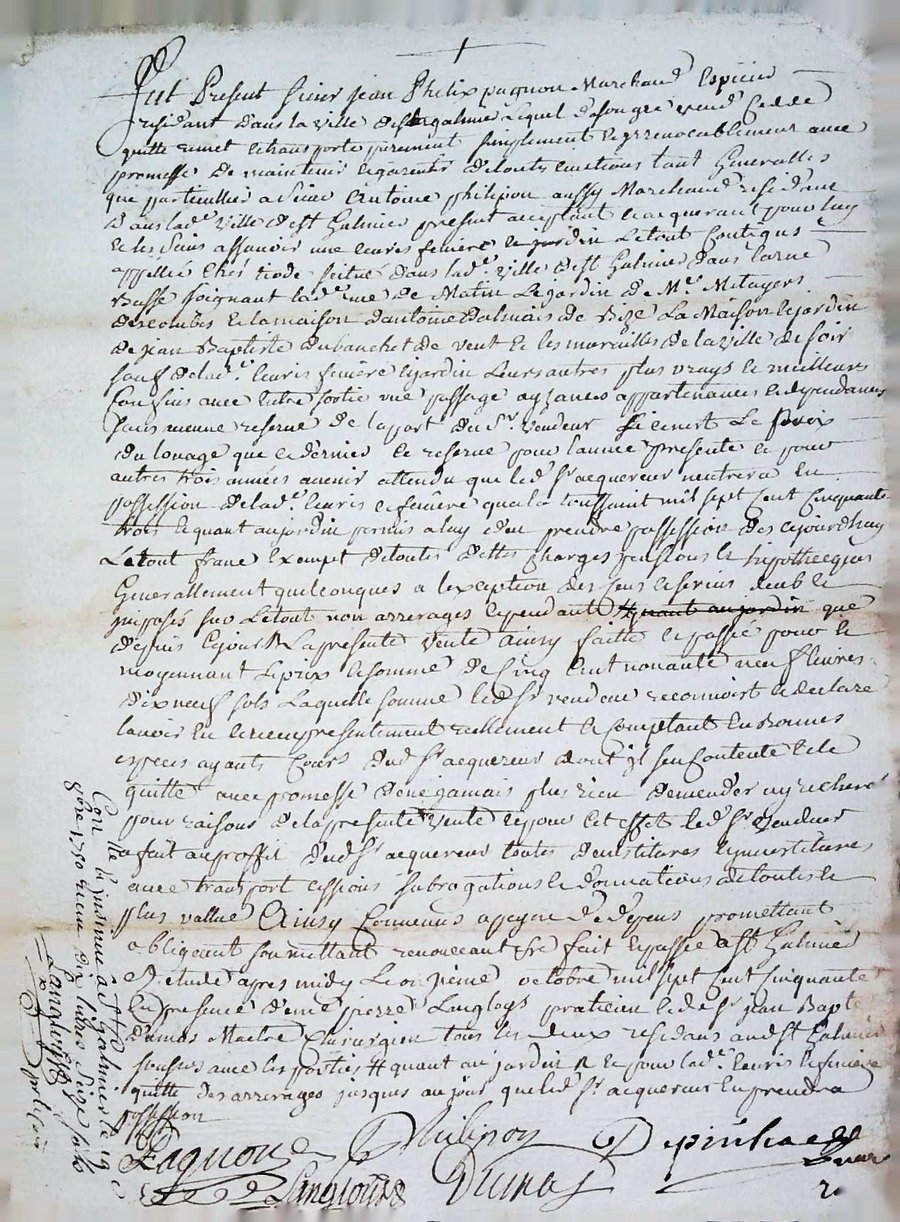 Fut Present sieur jean Phelix pagnon Marchand Epicier
residant dans la ville de st galmie lequel de son gré vend cedde
quitte remet et transporte purement simplement et irrevocablement avec
promesse de maintenir et garentir de touts evictions tant Generalles
que particullier a sieur Antoine philipon aussy Marchand resident
dans lad.e ville de st Galmier present acceptant et acquerant pour luy
et les siens assavoir une ecurie feniere et jardin le tout contigus
appellée situé dans lad.e ville de st Galmier dans la rue
Basse joignant lad.e rue de Matin le jardin de Mr. Mitayer
et la maison d'antoine dalmais de Bize La Maison et jardin
de jean Baptiste dubanchet de vent et les murailles de la ville de soir
sauf de lad.e ecurie feniere et jardin leurs autres plus vrays et meilleurs
confins avec entre sortie vue passage ayzances appartenances et dependances
sans aucune reserve de la part du d. Sr. vendeur si ce n'est Le prix
du louage que ce dernier se reserve pour l'année presente et pour
autres trois années avenir attendu que led. Sr acquereur n'entrera en
possession de lad.e ecurie et feniere qu'a la toussaint mil sept cent cinquante
trois et quant au jardin permis a luy d'en prendre possession des ajourdhuy
Le tout franc Exempt de toutes dettes charges pensions et hipotheeques
Generallement quelconques a l'exception des cens et servis deub et
imposés sur le tout non arrerages cependant et quant au jardin que
depuis ce jour La presente vente ainsy faitte et passée pour et
moyennant le prix et somme de Cinq Cent nonante neuf livres
dix neuf sols Laquelle somme led. Sr vendeur reconnoist et declare
l'avoir eu et receu presentement reellement et comptant en bonnes
especes ayants cours dud. Sr acquereur dont il s'en contente et le
quitte avec promesse de ne jamais plus rien demender ny rechercher
pour raisons de la presente vente et pour cet effet led. Sr vendeur
a fait au proffit dud. Sr acquereur toutes devestitures et investitures
avec transport cessions subrogations et donnations de toutte
plus vallue Ainsy convenus a peyne de depens promettant
obligeant soumettant renonceant &c fait et passée a st Galmier
etude apres midy Le onzieme octobre mil sept cent cinquante
En presence de me pierre Langloys praticien et de sr jean Bapte
Dumas Maitre Chirurgien tous les deux residans aud. st Galmier
soussignes avec les parties # quant au jardin & et pour lad.e ecurie et feniere
quitte des arrerages jusques au jour que led. Sr acquereur En prendra
possession
Pagnon Philipon Depinha
Langloys Dumas
Con.lle et insinué à St Galmier le
8bre 1750 receu dix livres seize sols
Langloys